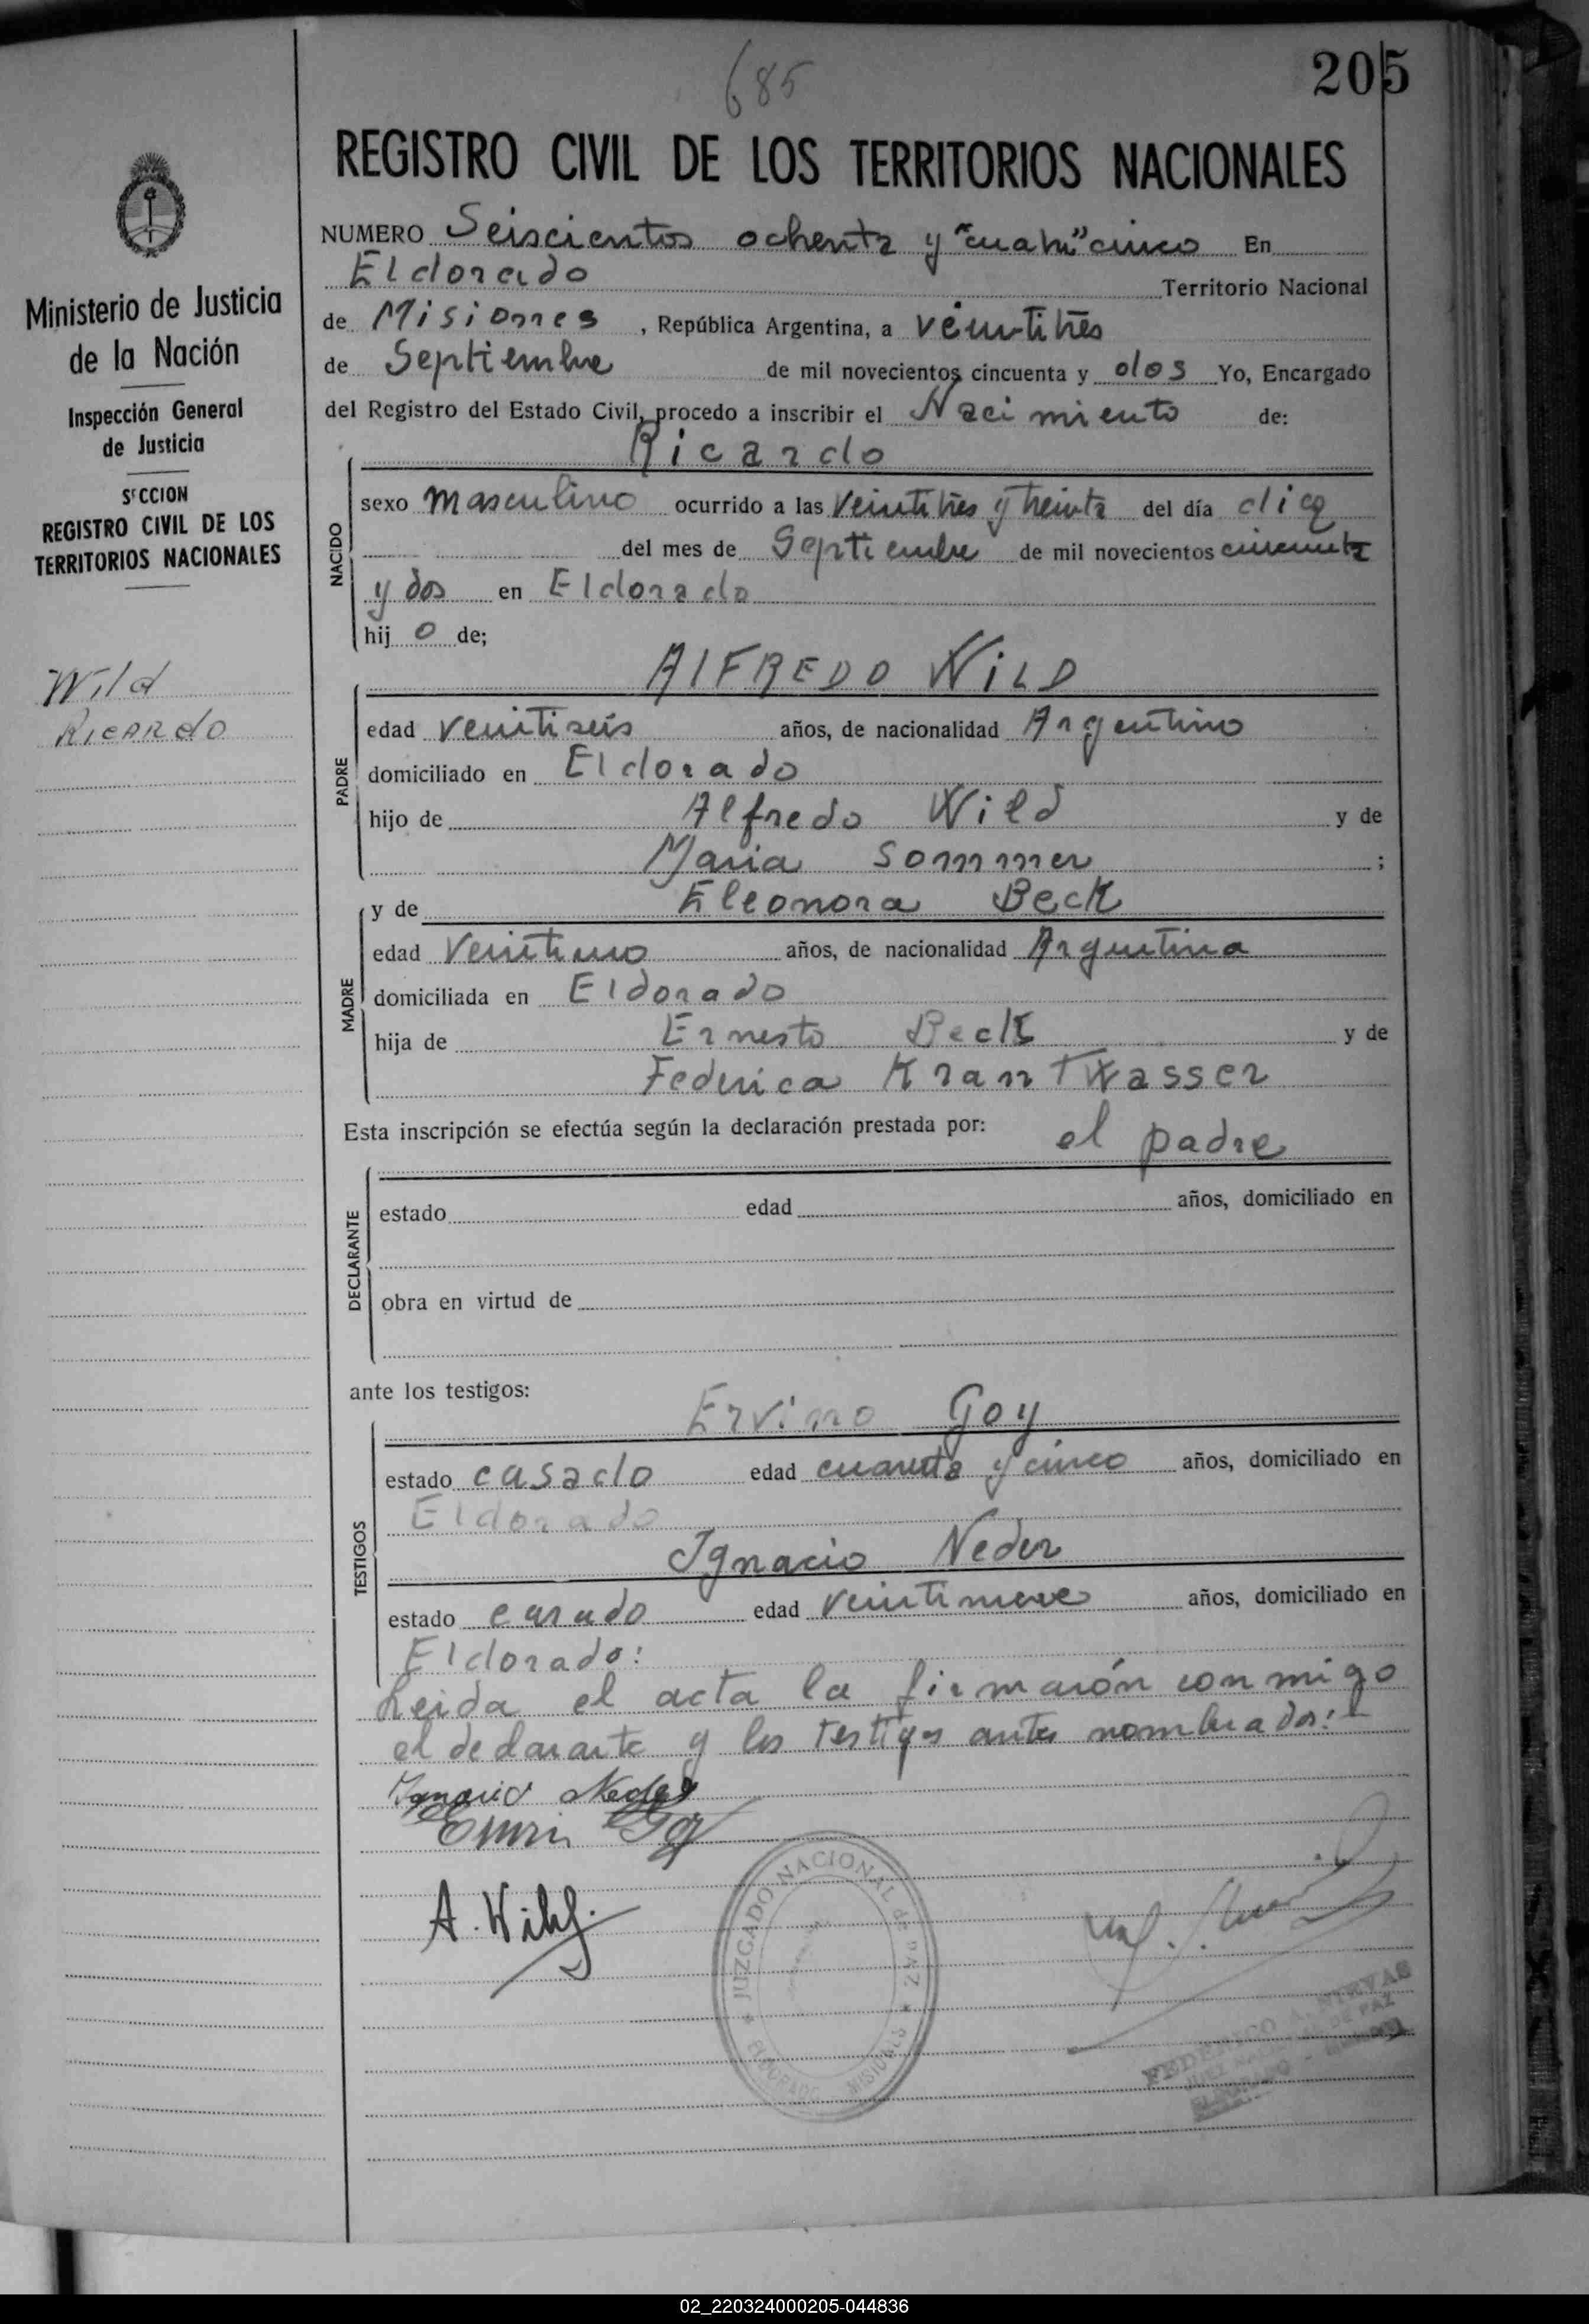 685
205
REGISTRO CIVIL DE LOS TERRITORIOS NACIONALES
NUMERO Seiscientos ochenta y "cuatro" cinco En
Eldorado Territorio Nacional
de Misiones, República Argentina, a veintitrés
de Septiembre de mil novecientos cincuenta y dos Yo, Encargado
del Registro del Estado Civil, procedo a inscribir el Nacimiento de:
Ricardo
NACIDO
sexo masculino ocurrido a las veintitrés y treinta del día
del mes de Septiembre de mil novecientos cincuenta
y dos en Eldorado
hijo de;
ALFREDO WILD
PADRE
edad veintiseis años, de nacionalidad Argentino
domiciliado en Eldorado
hijo de Alfredo Wild y de
Maria Sommer ;
MADRE
y de Eleonora Beck
edad veintiuno años, de nacionalidad Argentina
domiciliada en Eldorado
hija de Ernesto Beck y de
Federica Krantwasser
Esta inscripción se efectúa según la declaración prestada por: el padre
DECLARANTE
estado edad años, domiciliado en
obra en virtud de
ante los testigos:
TESTIGOS
Ervino Goy
estado casado edad cuarenta y cinco años, domiciliado en
Eldorado
Ignacio Neder
estado casado edad veintinueve años, domiciliado en
Eldorado:
Leida el acta la firmarón conmigo
el declarante y los testigos antes nombrados:
Ignacio Neder
Goy
A. Wild.
JUZGADO NACIONAL de PAZ
ELDORADO MISIONES
FEDERICO A. NIEVAS
JUEZ NACIONAL DE PAZ
ELDORADO - Misiones
Ministerio de Justicia
de la Nación
Inspección General
de Justicia
SECCION
REGISTRO CIVIL DE LOS
TERRITORIOS NACIONALES
Wild
Ricardo
02_220324000205-044836